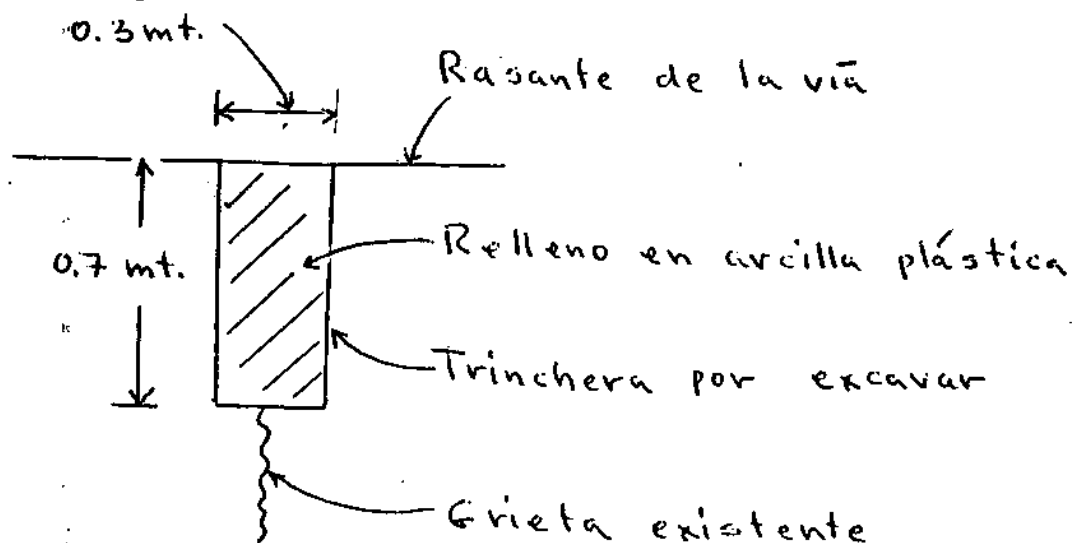 0.3 mt.
Rasante de la vía
0.7 mt.
Relleno en arcilla plástica
Trinchera por excavar
Grieta existente